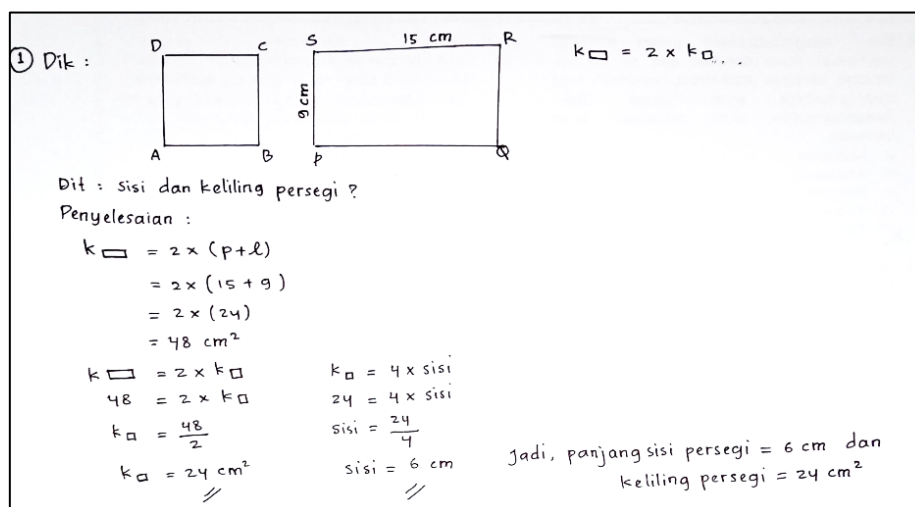 ① Dik :
D C S 15 cm R k▭ = 2 x k□...
9 cm
A B P Q
Dit : sisi dan keliling persegi ?
Penyelesaian :
k▭ = 2 x (p+l)
= 2 x (15 + 9)
= 2 x (24)
= 48 cm²
k▭ = 2 x k□
48 = 2 x k□
k□ = 48/2
k□ = 24 cm²
k□ = 4 x sisi
24 = 4 x sisi
sisi = 24/4
sisi = 6 cm
Jadi, panjang sisi persegi = 6 cm dan
keliling persegi = 24 cm²